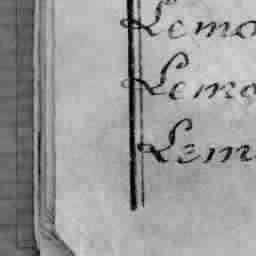 Lemo
Lemo
Lem